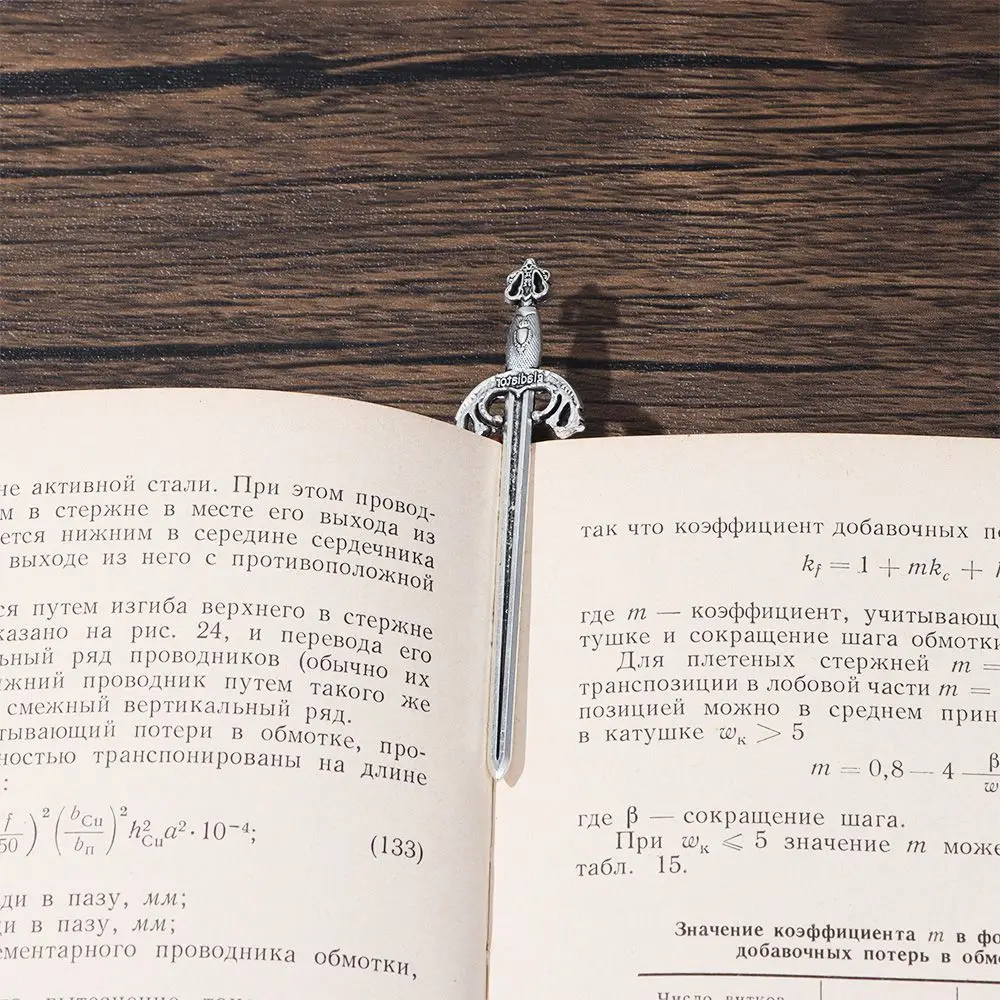 gladiator
не активной стали. При этом провод-
м в стержне в месте его выхода из
ется нижним в середине сердечника
выходе из него с противоположной
ся путем изгиба верхнего в стержне
казано на рис. 24, и перевода его
ьный ряд проводников (обычно их
жний проводник путем такого же
смежный вертикальный ряд.
тывающий потери в обмотке, про-
ностью транспонированы на длине
:
(f/50)² (b_Cu/b_п)² h²_Cu a² · 10⁻⁴; (133)
ди в пазу, мм;
ди в пазу, мм;
ементарного проводника обмотки,
так что коэффициент добавочных п
k_f = 1 + mk_c +
где m — коэффициент, учитывающ
тушке и сокращение шага обмотки
Для плетеных стержней m =
транспозиции в лобовой части m =
позицией можно в среднем прин
в катушке w_к > 5
m = 0,8 — 4 β/w
где β — сокращение шага.
При w_к ⩽ 5 значение m може
табл. 15.
Значение коэффициента m в фо
добавочных потерь в обм
Число витков